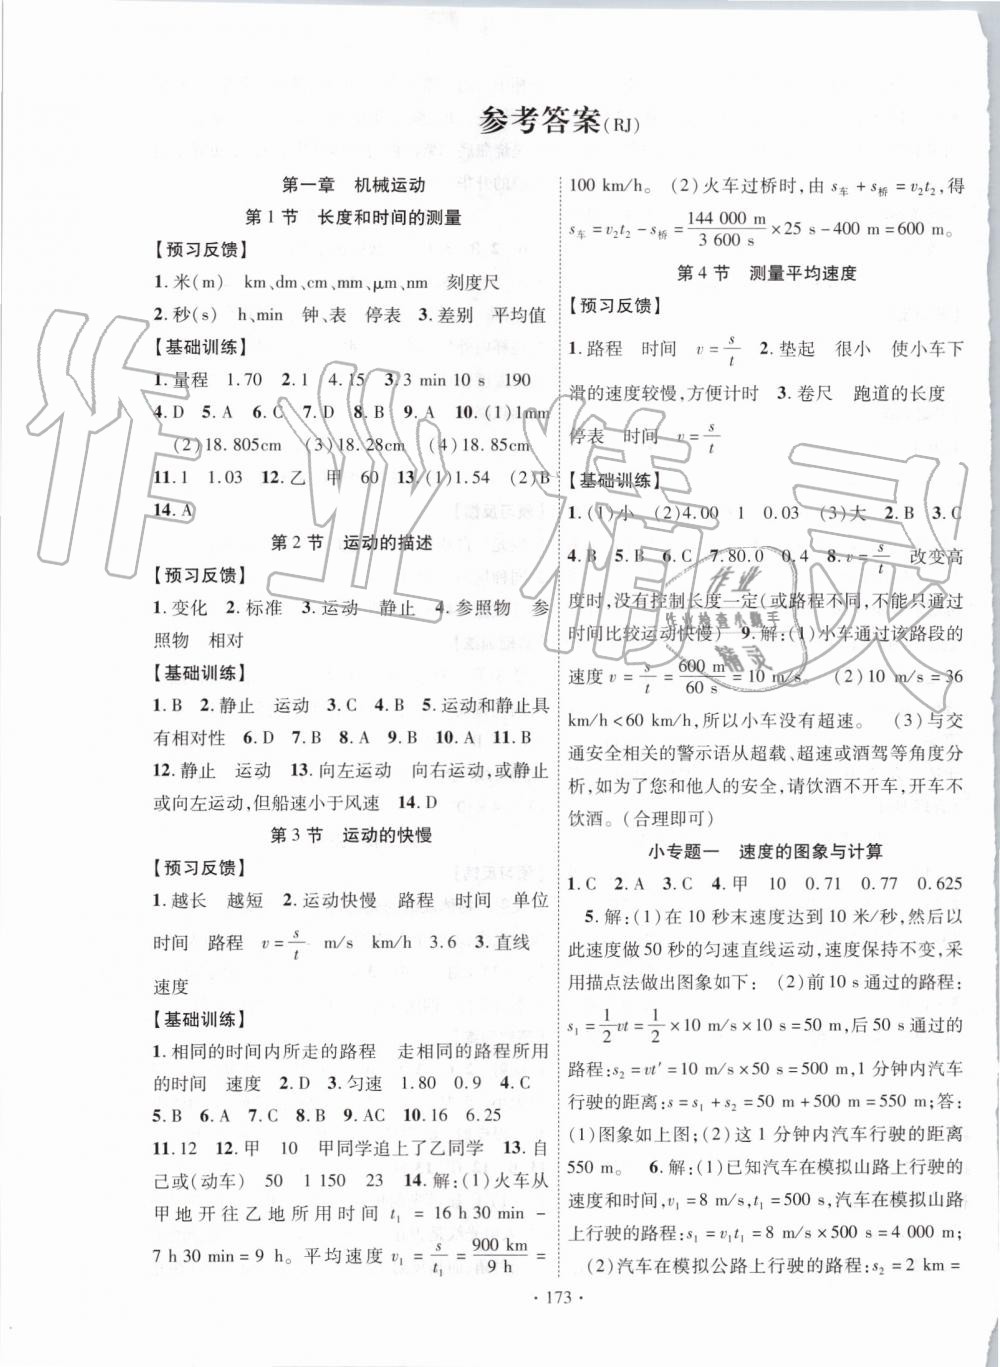 参考答案(RJ)
第一章　机械运动
第 1 节　长度和时间的测量
【预习反馈】
1.米(m)　km、dm、cm、mm、μm、nm　刻度尺
2.秒(s)　h、min　钟、表　停表　3.差别　平均值
【基础训练】
1.量程　1.70　2.1　4.15　3.3 min 10 s　190
4.D　5.A　6.C　7.D　8.B　9.A　10.(1)1mm
(2)18.805cm　(3)18.28cm　(4)18.85cm
11.1　1.03　12.乙　甲　60　13.(1)1.54　(2)B
14.A
第 2 节　运动的描述
【预习反馈】
1.变化　2.标准　3.运动　静止　4.参照物　参
照物　相对
【基础训练】
1.B　2.静止　运动　3.C　4.B　5.运动和静止具
有相对性　6.D　7.B　8.A　9.A　10.A　11.B
12.静止　运动　13.向左运动　向右运动,或静止
或向左运动,但船速小于风速　14.D
第 3 节　运动的快慢
【预习反馈】
1.越长　越短　2.运动快慢　路程　时间　单位
时间　路程　v=s/t　m/s　km/h　3.6　3.直线
速度
【基础训练】
1.相同的时间内所走的路程　走相同的路程所用
的时间　速度　2.D　3.匀速　1.80　0.9　4.C
5.B　6.A　7.C　8.B　9.AC　10.16　6.25
11.12　12.甲　10　甲同学追上了乙同学　13.自
己或(动车)　50　1 150　23　14.解:(1)火车从
甲地开往乙地所用时间 t₁=16 h 30 min-
7 h 30 min=9 h。平均速度 v₁=s/t₁=900 km/9 h=
100 km/h。(2)火车过桥时,由 s车+s桥=v₂t₂,得
s车=v₂t₂-s桥=144 000 m/3 600 s×25 s-400 m=600 m。
第 4 节　测量平均速度
【预习反馈】
1.路程　时间　v=s/t　2.垫起　很小　使小车下
滑的速度较慢,方便计时　3.卷尺　跑道的长度
停表　时间　v=s/t
【基础训练】
1.(1)小　(2)4.00　1　0.03　(3)大　2.B　3.C
4.B　5.B　6.C　7.80.0　0.4　8.v=s/t　改变高
度时,没有控制长度一定(或路程不同,不能只通过
时间比较运动快慢)　9.解:(1)小车通过该路段的
速度 v=s/t=600 m/60 s=10 m/s。　(2)10 m/s=36
km/h<60 km/h,所以小车没有超速。　(3)与交
通安全相关的警示语从超载、超速或酒驾等角度分
析,如为了您和他人的安全,请饮酒不开车,开车不
饮酒。(合理即可)
小专题一　速度的图象与计算
1.C　2.A　3.C　4.甲　10　0.71　0.77　0.625
5.解:(1)在 10 秒末速度达到 10 米/秒,然后以
此速度做 50 秒的匀速直线运动,速度保持不变,采
用描点法做出图象如下:　(2)前 10 s 通过的路程:
s₁=1/2vt=1/2×10 m/s×10 s=50 m,后 50 s 通过的
路程:s₂=vt′=10 m/s×50 s=500 m,1 分钟内汽车
行驶的距离:s=s₁+s₂=50 m+500 m=550 m;答:
(1)图象如上图;(2)这 1 分钟内汽车行驶的路程是
550 m。　6.解:(1)已知汽车在模拟山路上行驶的
速度和时间,v₁=8 m/s,t₁=500 s,汽车在模拟山路
上行驶的路程:s₁=v₁t₁=8 m/s×500 s=4 000 m;
(2)汽车在模拟公路上行驶的路程:s₂=2 km=
· 173 ·
作业精灵
作业
作业检查小助手
精灵